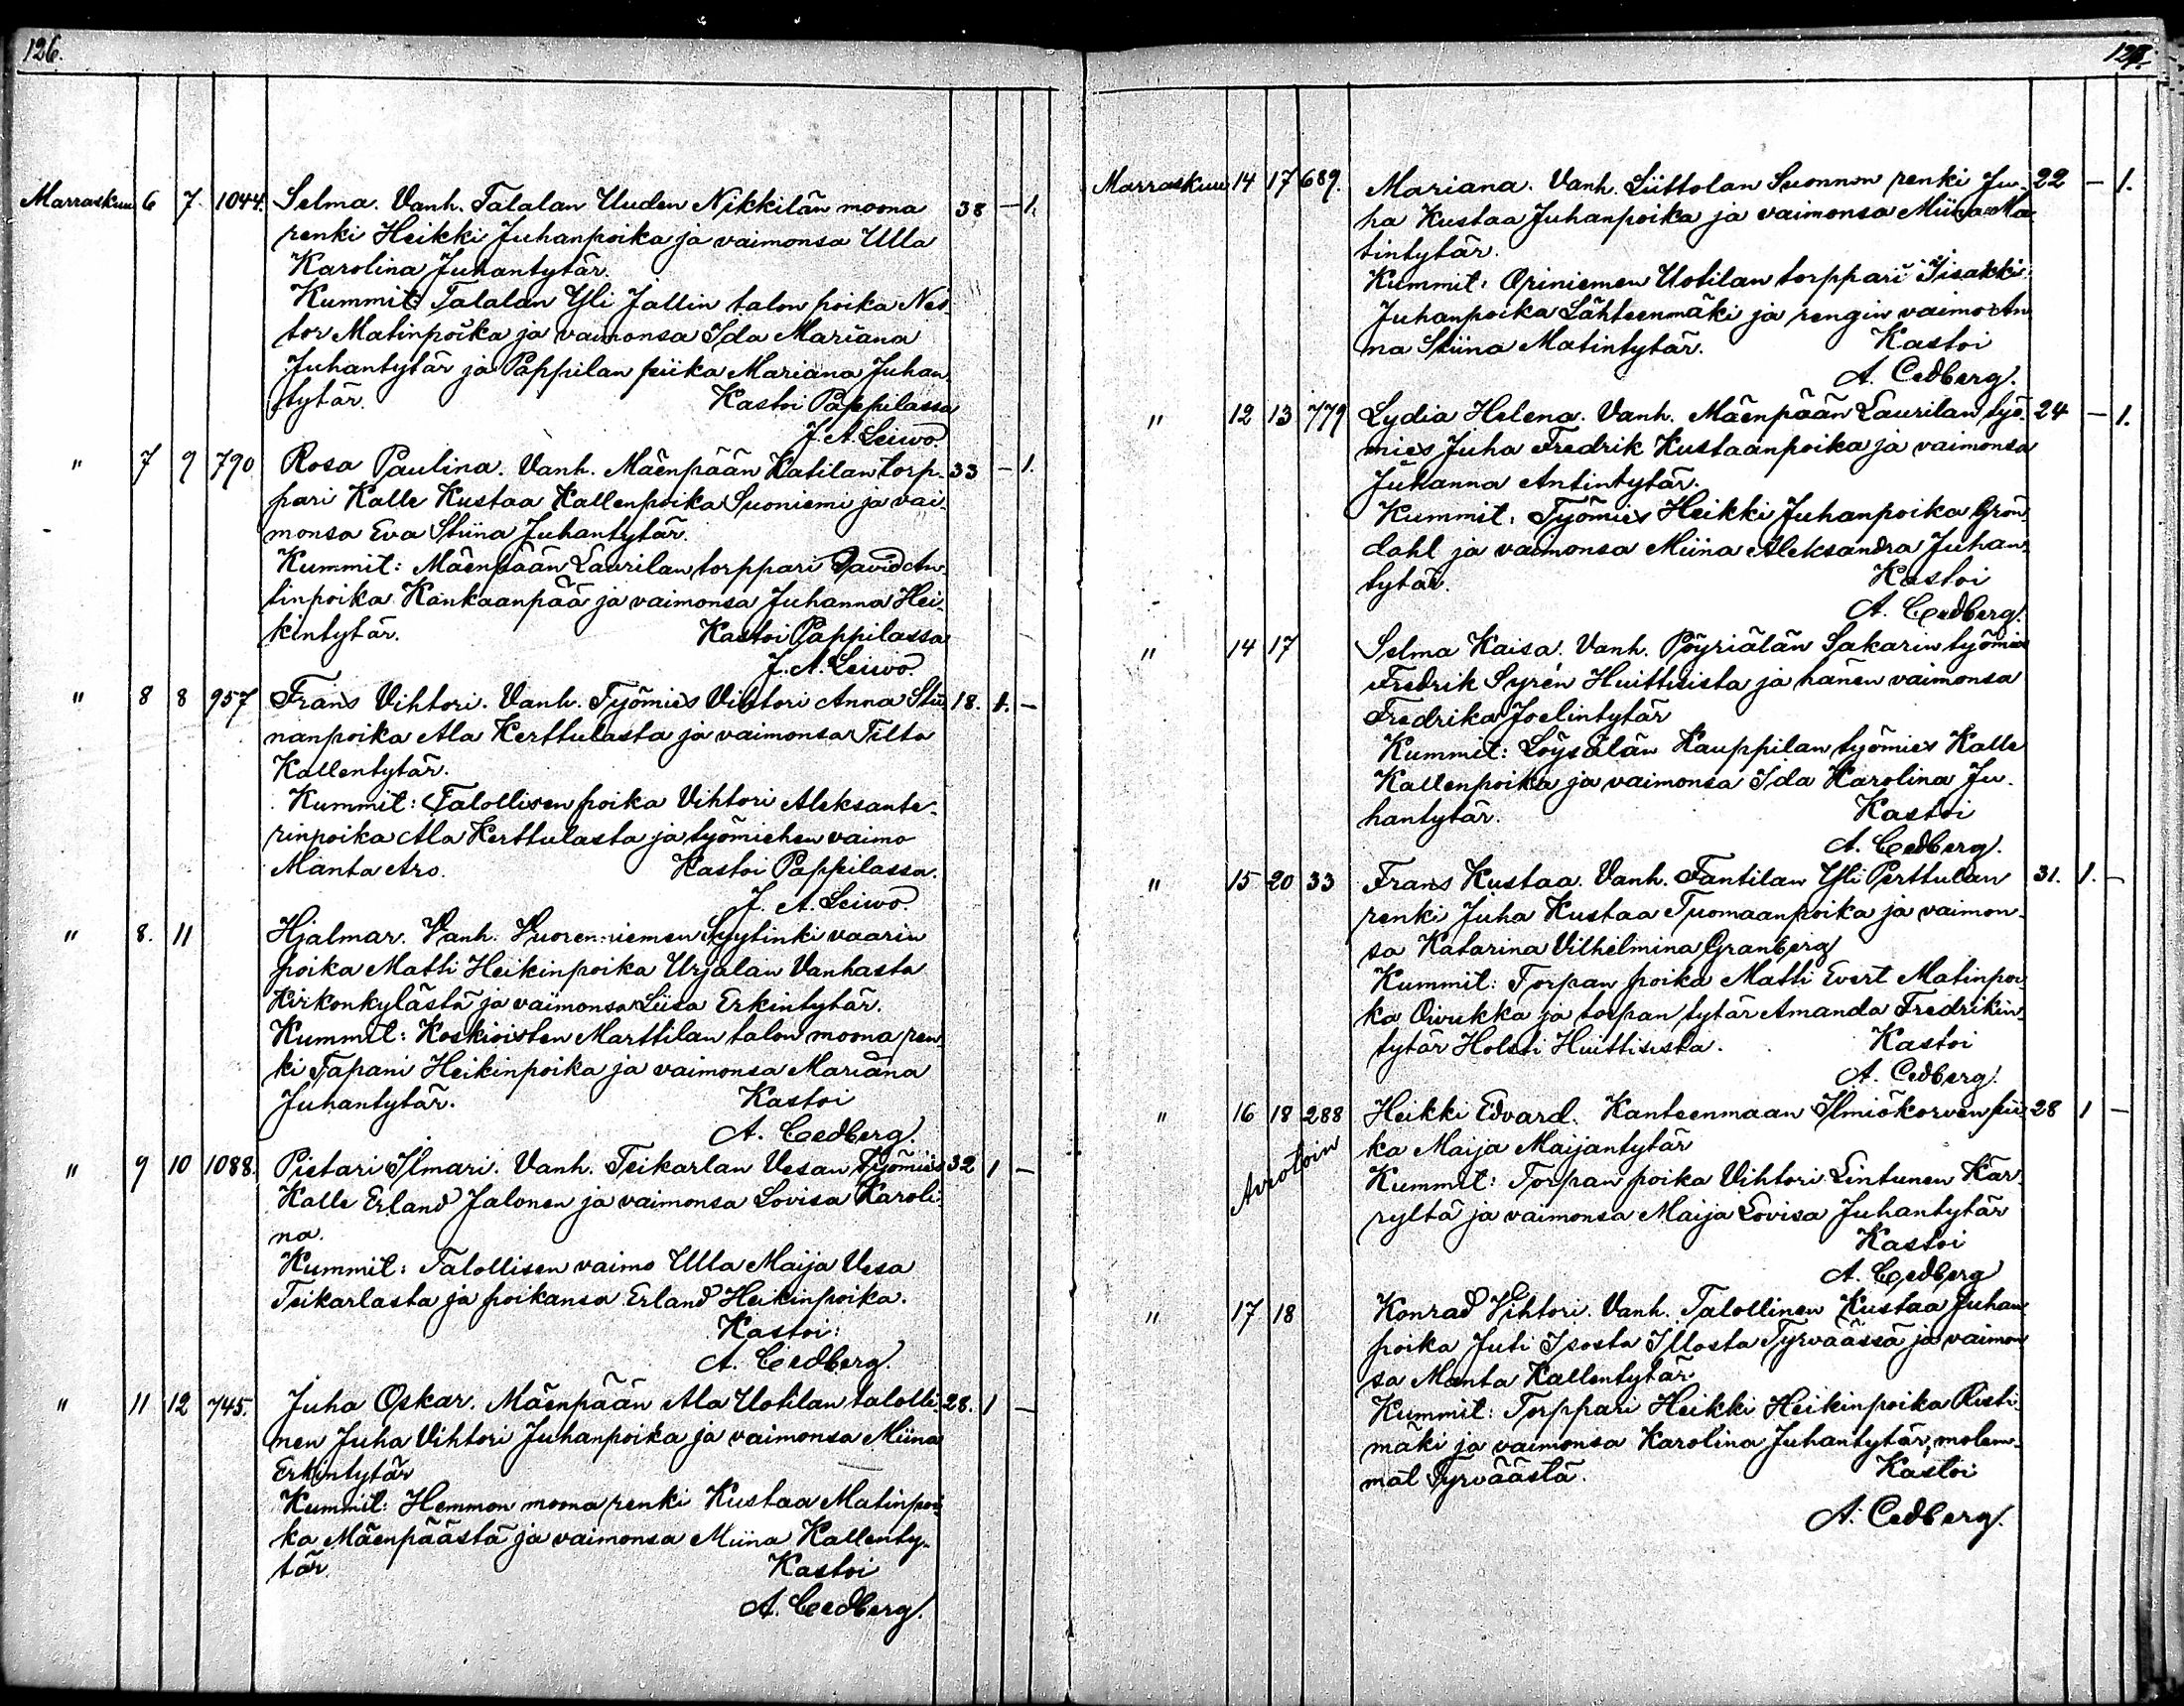 126.
Marraskuu 6 7. 1044. Selma. Vanh. Talalan Uuden Nikkilän moona 38 — 1.
renki Heikki Juhanpoika ja vaimonsa Ulla
Karolina Juhantytär.
Kummit: Talalan Yli Jallin talon poika Nes-
tor Matinpoika ja vaimonsa Ida Mariana
Juhantytär ja Pappilan piika Mariana Juhan-
tytär. Kastoi Pappilassa
J. A. Leiwo.
" 7 9 790 Rosa Paulina. Vanh. Mäenpään Katilan torp- 33 — 1.
pari Kalle Kustaa Kallenpoika Suoniemi ja vai-
monsa Eva Stiina Juhantytär.
Kummit: Mäenpään Laurilan torppari David An-
tinpoika Kankaanpää ja vaimonsa Juhanna Hei-
kintytär. Kastoi Pappilassa
J. A. Leiwo.
" 8 8 957 Frans Vihtori. Vanh. Työmies Vihtori Anna Stii- 18. 1. —
nanpoika Ala Kerttulasta ja vaimonsa Tilta
Kallentytär.
Kummit: Talollisen poika Vihtori Aleksante-
rinpoika Ala Kerttulasta ja työmiehen vaimo
Manta Aro. Kastoi Pappilassa.
J. A. Leiwo.
" 8. 11 Hjalmar. Vanh. Vuorenniemen Syytinki vaarin
poika Matti Heikinpoika Urjalan Vanhasta
Kirkonkylästä ja vaimonsa Liisa Erkintytär.
Kummit: Koskioisten Marttilan talon moona ren-
ki Tapani Heikinpoika ja vaimonsa Mariana
Juhantytär. Kastoi
A. Cedberg.
" 9 10 1088. Pietari Ilmari. Vanh. Teikarlan Vesan Työmies 32 1 —
Kalle Erland Jalonen ja vaimonsa Lovisa Karoli-
na.
Kummit: Talollisen vaimo Ulla Maija Vesa
Teikarlasta ja poikansa Erland Heikinpoika.
Kastoi:
A. Cedberg.
" 11 12 745. Juha Oskar. Mäenpään Ala Uotilan talolli- 28. 1 —
nen Juha Vihtori Juhanpoika ja vaimonsa Miina
Erkintytär
Kummit: Hemmon moona renki Kustaa Matinpoi-
ka Mäenpäästä ja vaimonsa Miina Kallenty-
tär. Kastoi
A. Cedberg.
127.
Marraskuu 14 17 689. Mariana. Vanh. Liittolan Suonnon renki Ju- 22 — 1.
ha Kustaa Juhanpoika ja vaimonsa Miina Ma-
tintytär.
Kummit: Opiniemen Uotilan torppari Iisakki
Juhanpoika Lähteenmäki ja rengin vaimo An-
na Stiina Matintytär. Kastoi
A. Cedberg.
" 12 13 779 Lydia Helena. Vanh. Mäenpään Laurilan työ- 24 — 1.
mies Juha Fredrik Kustaanpoika ja vaimonsa
Juhanna Antintytär.
Kummit: Työmies Heikki Juhanpoika Grön-
dahl ja vaimonsa Miina Aleksandra Juhan-
tytär. Kastoi
A. Cedberg.
" 14 17 Selma Kaisa. Vanh. Pöyriälän Sakarin työmies
Fredrik Syrén Huittisista ja hänen vaimonsa
Fredrika Joelintytär
Kummit: Löysälän Kauppilan työmies Kalle
Kallenpoika ja vaimonsa Ida Karolina Ju-
hantytär. Kastoi
A. Cedberg.
" 15 20 33 Frans Kustaa. Vanh. Fantilan Yli Perttulan 31. 1. —
renki Juha Kustaa Tuomaanpoika ja vaimon-
sa Katarina Vilhelmina Granberg
Kummit: Torpan poika Matti Evert Matinpoi-
ka Oivukka ja torpan tytär Amanda Fredrikin-
tytär Holsti Huittisista. Kastoi
A. Cedberg.
" 16 18 288 Heikki Edvard. Kanteenmaan Ilmiökorven pii- 28 1 —
Aviotoin ka Maija Maijantytär
Kummit: Torpan poika Vihtori Lintunen Kär-
ryltä ja vaimonsa Maija Lovisa Juhantytär
Kastoi
A. Cedberg
" 17 18 Konrad Vihtori. Vanh. Talollinen Kustaa Juhan-
poika Juti Isosta Illosta Tyrväässä ja vaimon-
sa Manta Kallentytär
Kummit: Torppari Heikki Heikinpoika Risti-
mäki ja vaimonsa Karolina Juhantytär, molem-
mat Tyrväästä. Kastoi
A. Cedberg.